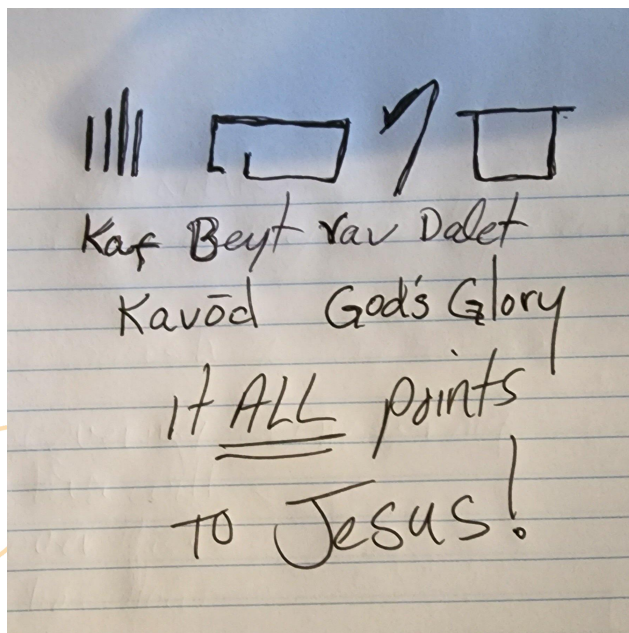 Kaf Beyt Vav Dalet
Kavōd God's Glory
it ALL points
TO Jesus!